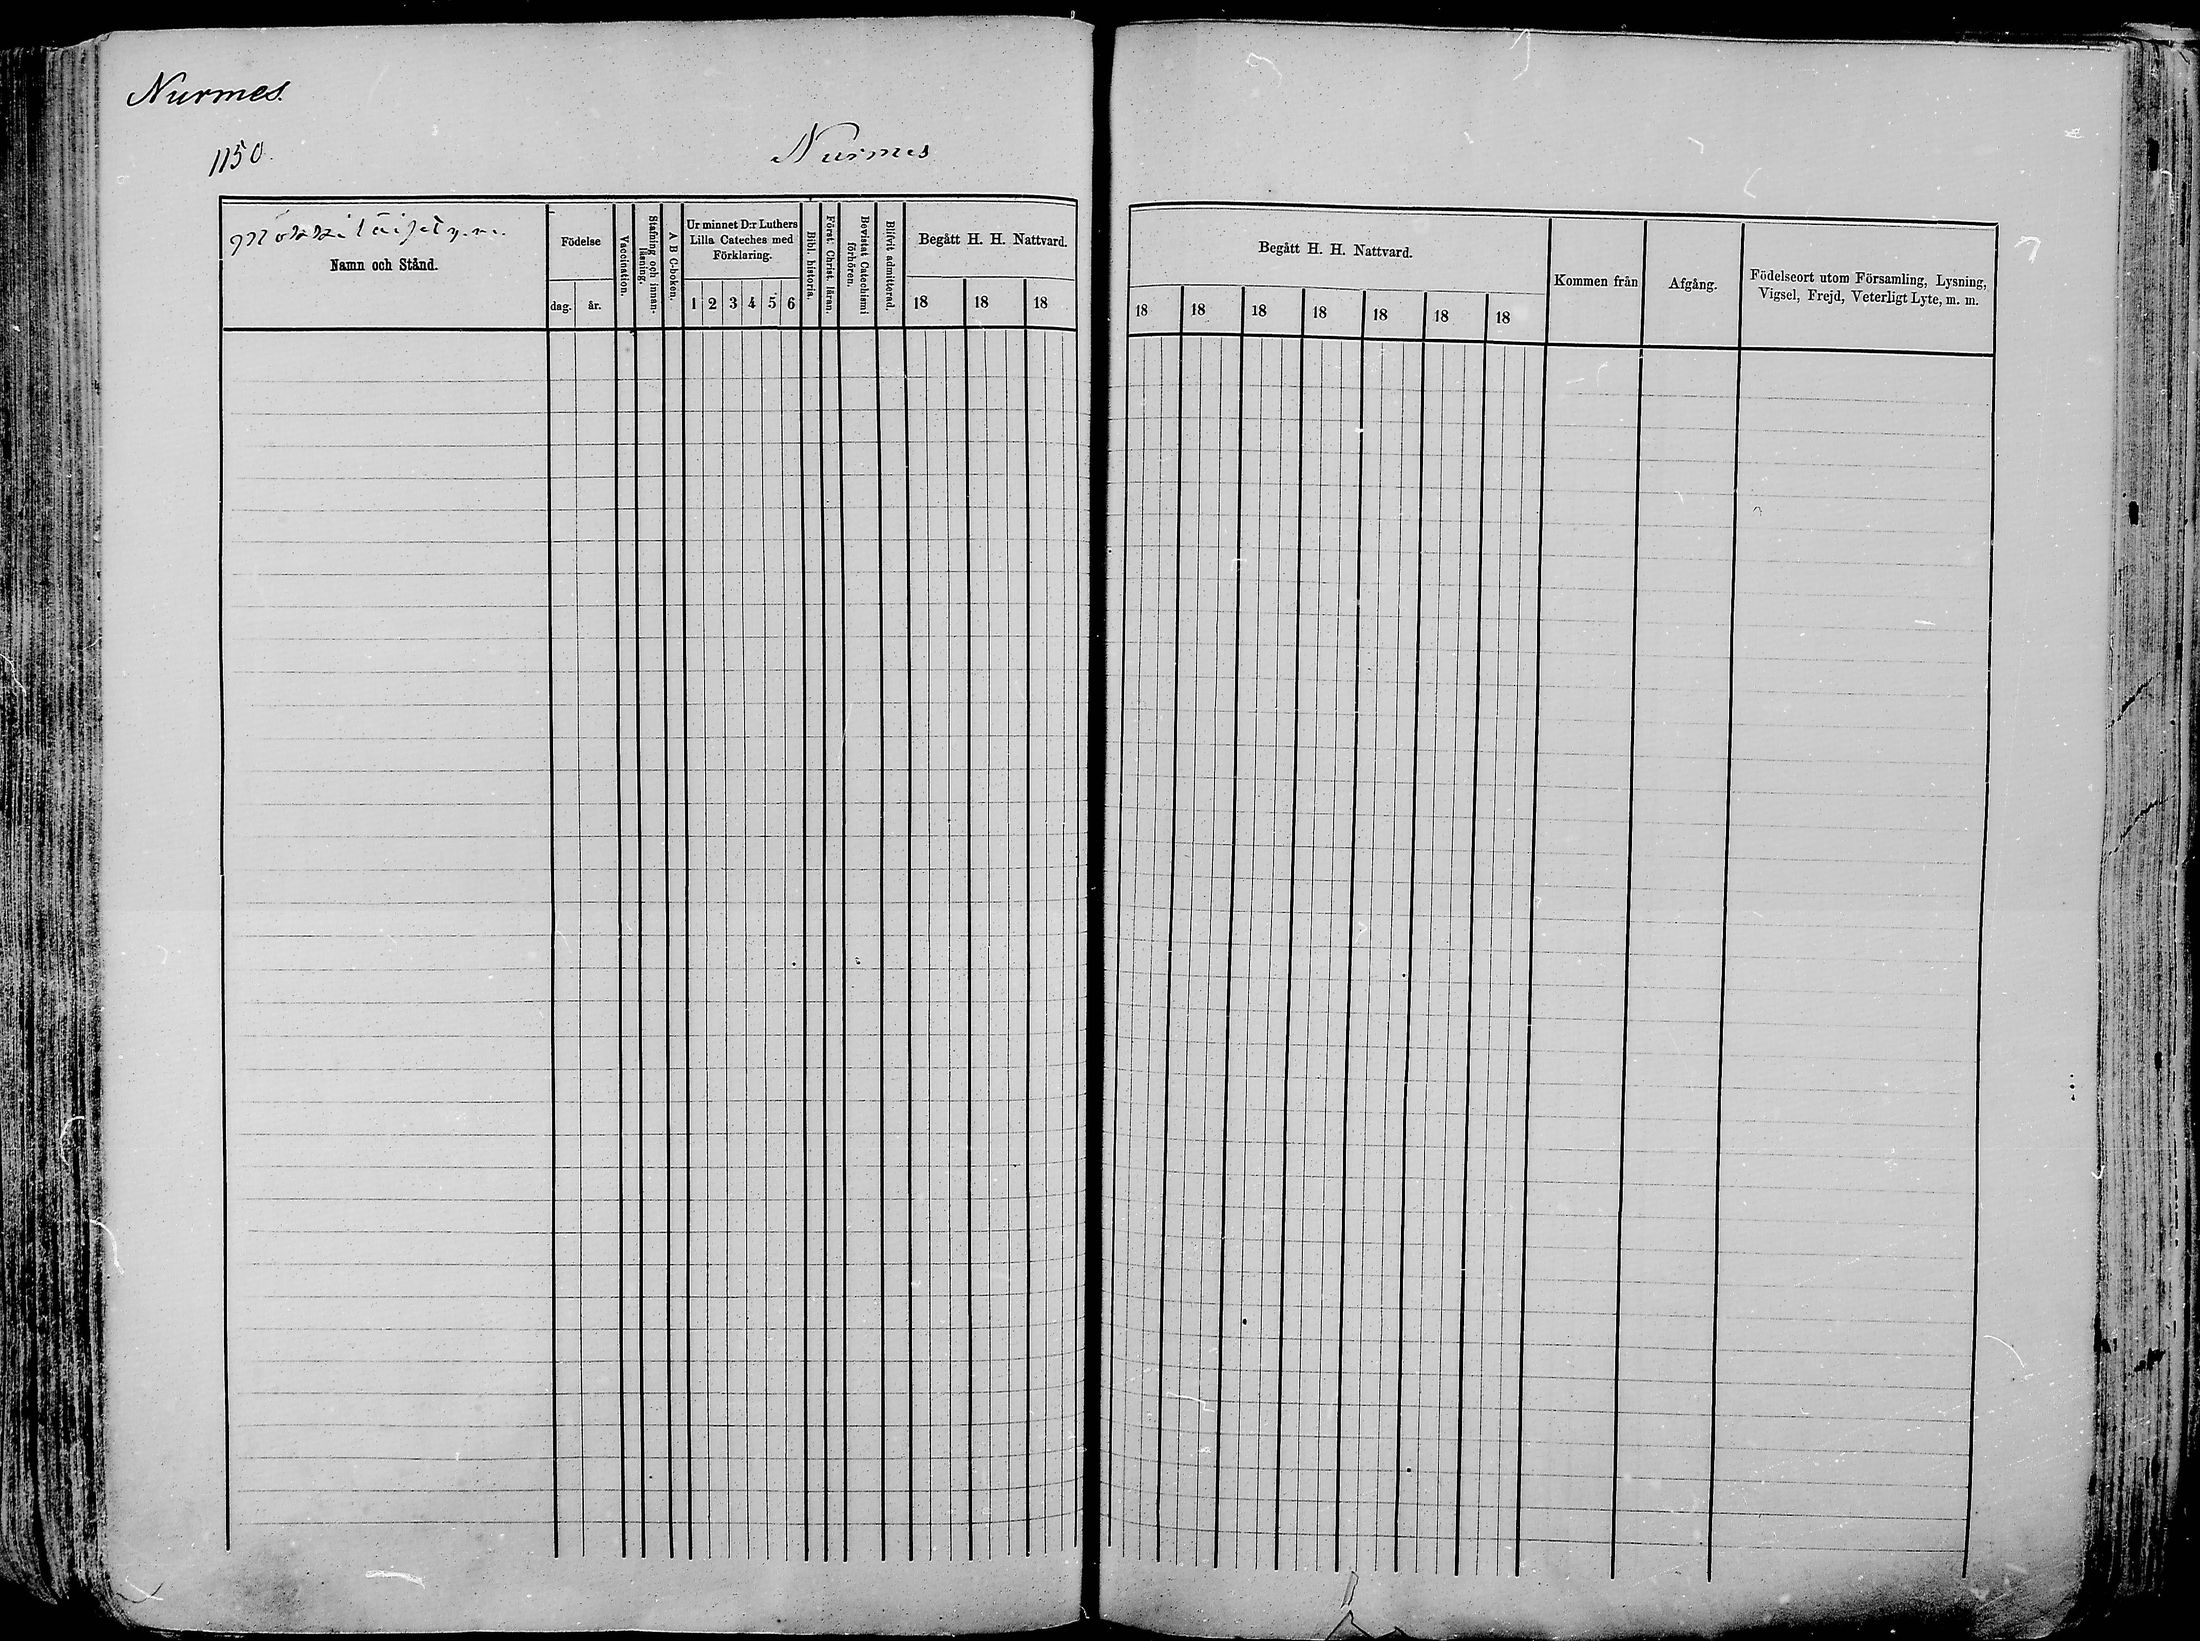 Nurmes.
1150.
Nurmes
Namn och Stånd.
Födelse
dag.
år.
Vaccination.
Stafning och innan-
läsning.
A B C-boken.
Ur minnet D:r Luthers
Lilla Cateches med
Förklaring.
1 2 3 4 5 6
Bibl. historia.
Först. Christ. läran.
Bevistat Catechismi
förhören.
Blifvit admitterad.
Begått H. H. Nattvard.
18 18 18
Begått H. H. Nattvard.
18 18 18 18 18 18 18
Kommen från
Afgång.
Födelseort utom Församling, Lysning,
Vigsel, Frejd, Veterligt Lyte, m. m.